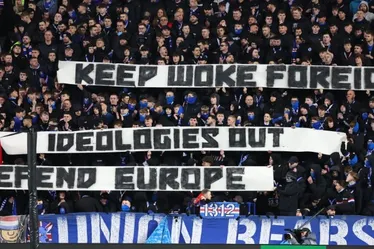 KEEP WOKE FOREIG
IDEOLOGIES OUT
EFEND EUROPE
1312
UNION BEARS